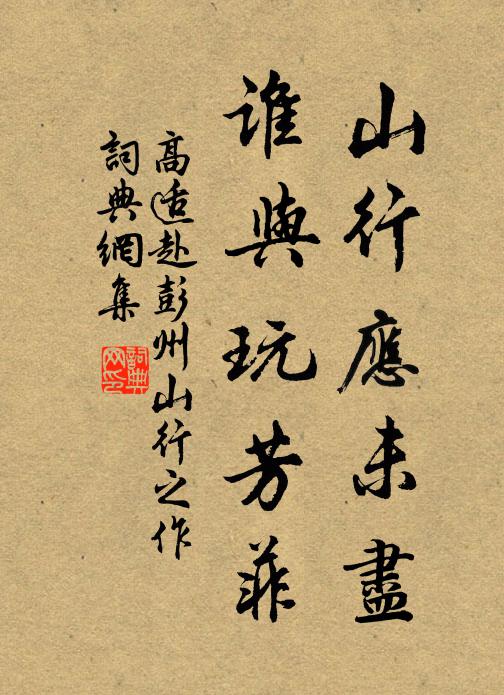 山行應未盡
誰與玩芳菲
高适赴彭州山行之作
詞典網集
詞典网印